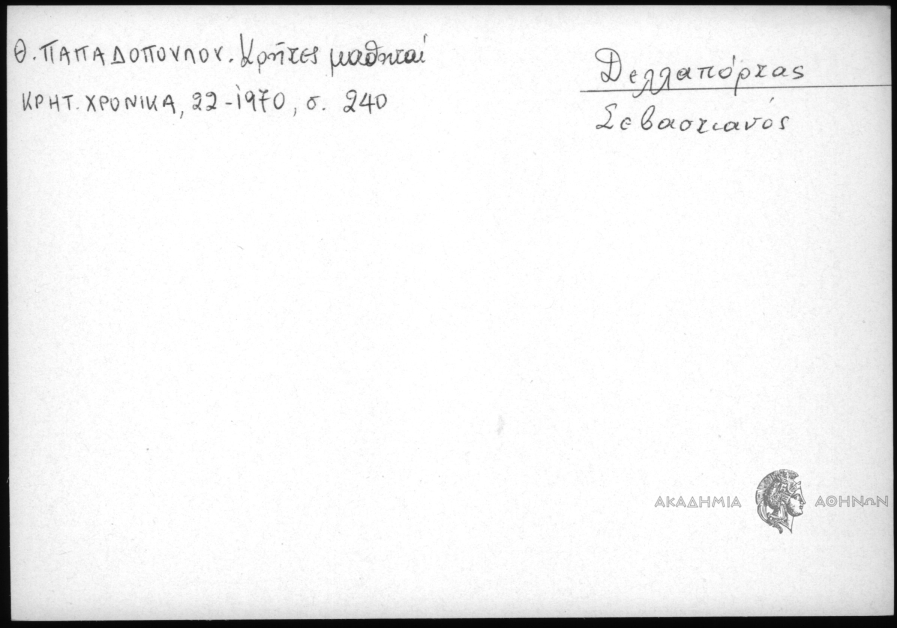 Θ. ΠΑΠΑΔΟΠΟΥΛΟΥ. Κρῆτες μαθηταί
ΚΡΗΤ. ΧΡΟΝΙΚΑ, 22-1970, σ. 240
Δελλαπόρτας
Σεβαστιανός
ΑΚΑΔΗΜΙΑ ΑΘΗΝΩΝ